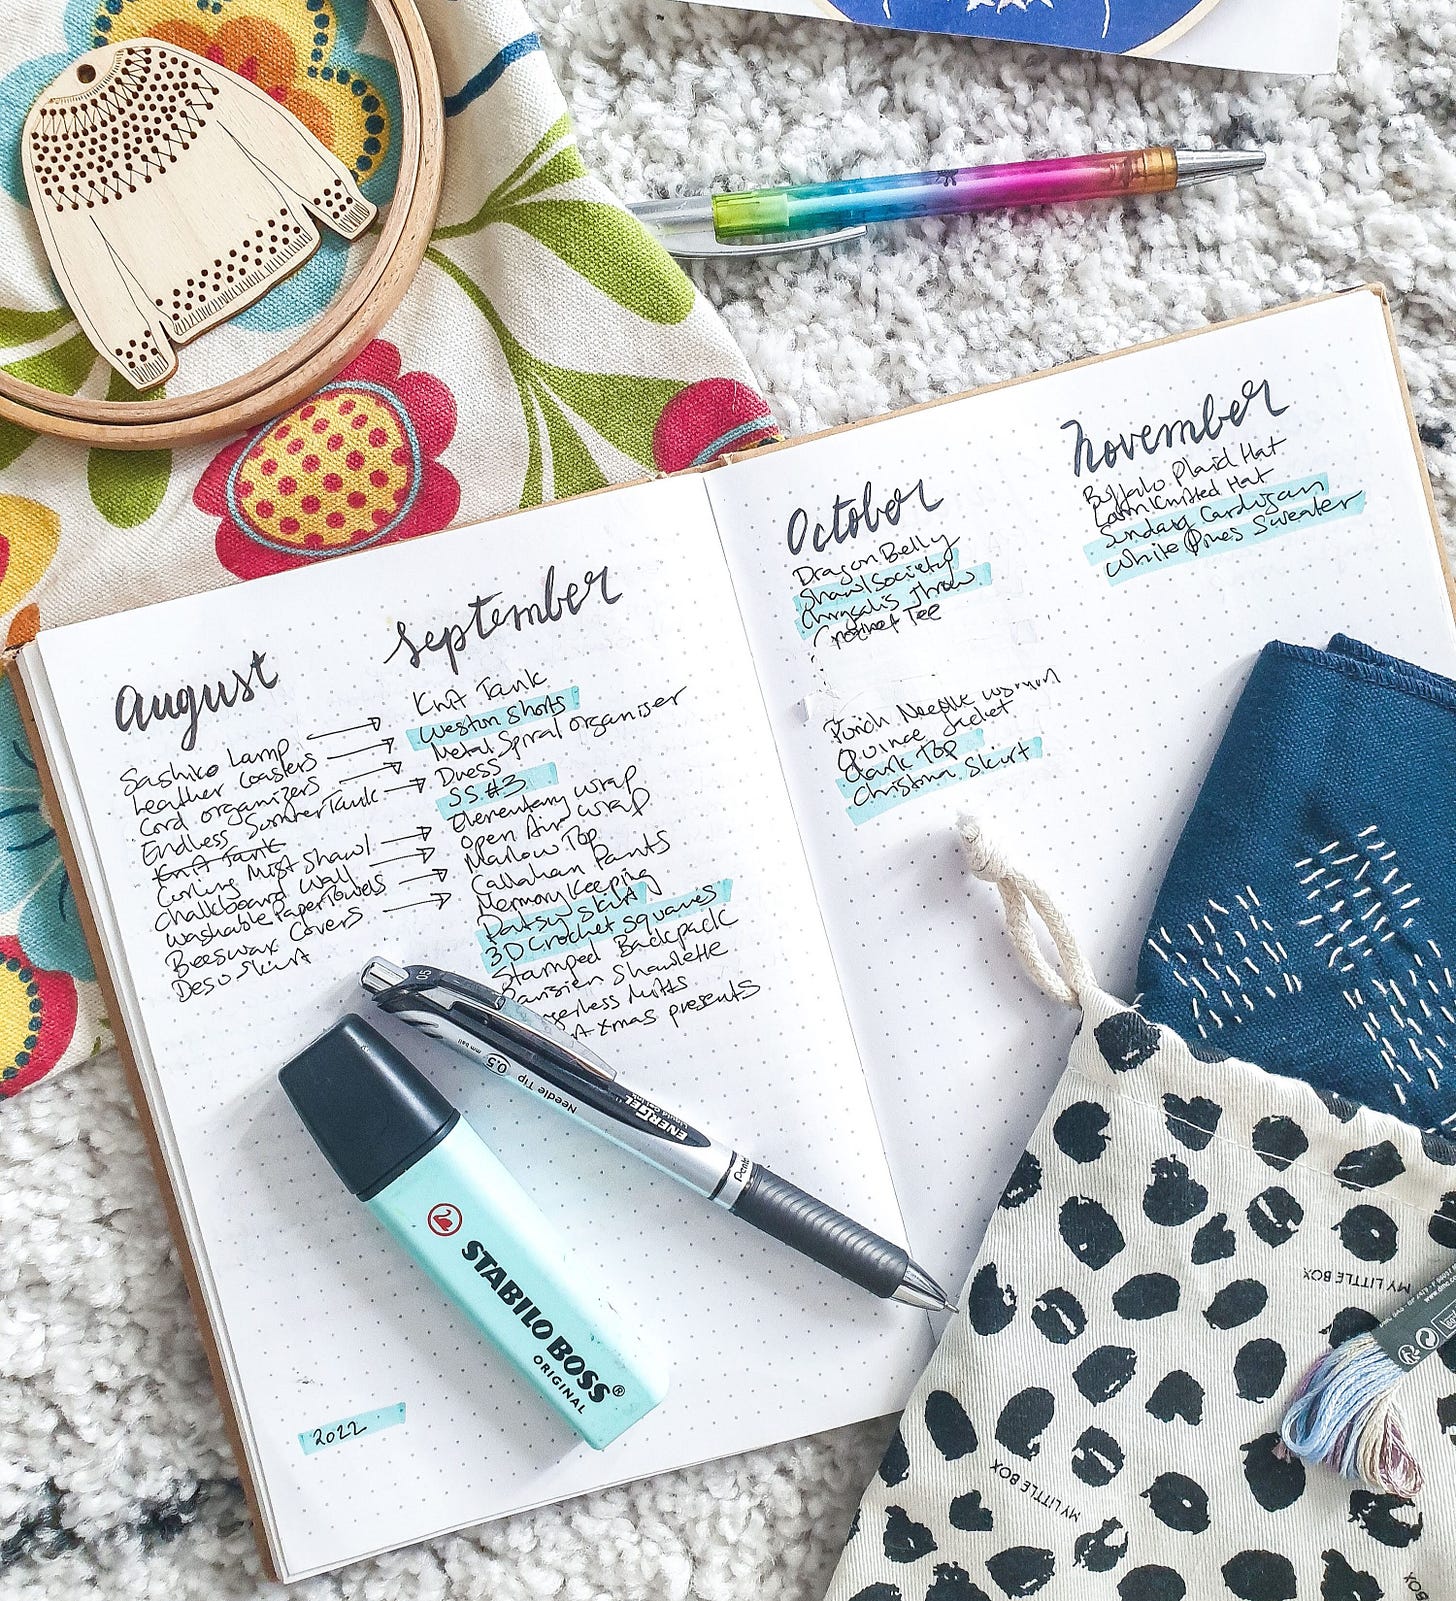 August
Sashiko Lamp
Leather Coasters
Cord organizers
Endless Summer Tank
Knit Tank
Curling Mist Shawl
Chalkboard Wall
Washable Paper Towels
Beeswax Covers
Deso Skirt
September
Knit Tank
Weston Shorts
Metal Spiral organiser
Dress
SS #3
Elementary wrap
Open Air wrap
Marlow Top
Callahan Pants
Memory Keeping
Patsy Skirt
3D Crochet Squares
Stamped Backpack
Parisien Shawlette
Mitts
Xmas presents
2022
October
Dragon Belly
Shawl Society
Chrysalis Throw
Tee
Punch Needle
Quince Jacket
Clark Top
Christina Skirt
November
Buffalo Plaid Hat
Loom Knitted Hat
Sunday Cardigan
White Pines Sweater
0.5
0.5 mm ball
Needle Tip
ENERGEL
Pentel
STABILO BOSS®
ORIGINAL
MY LITTLE BOX
MY LITTLE BOX